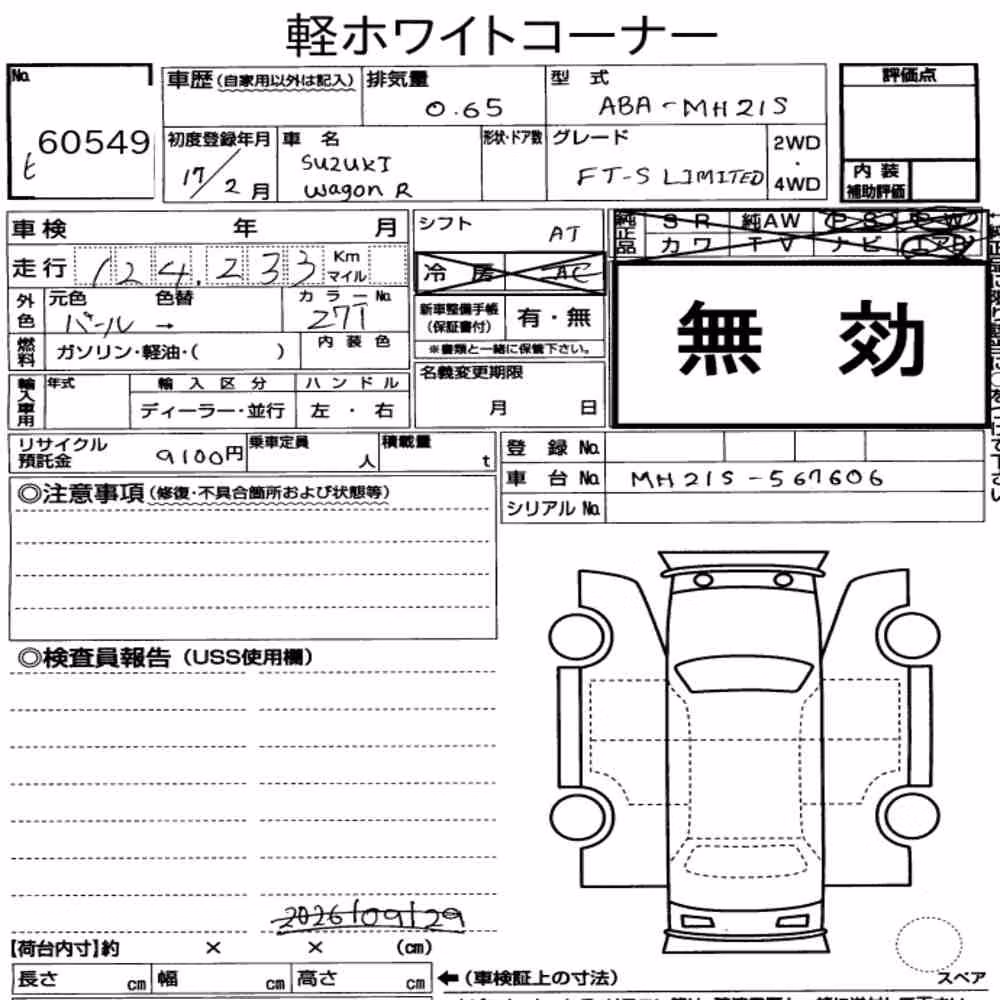 軽ホワイトコーナー
No. 60549
ヒ
車歴(自家用以外は記入) 排気量 0.65 型式 ABA-MH21S
評価点
内装補助評価
初度登録年月 17/2月 車名 SUZUKI Wagon R 形状・ドア数 グレード FT-S LIMITED 2WD・4WD
車検 年 月
シフト AT
純正品 SR 純AW PS PW
カワ TV ナビ エアB
走行 124,233 Km マイル
冷房 AC
無効
外色 元色 パール → 色替 カラーNo. 27T
新車整備手帳(保証書付) 有・無
※書類と一緒に保管下さい。
燃料 ガソリン・軽油・( ) 内装色
名義変更期限 月 日
輸入車用 年式 輸入区分 ハンドル
ディーラー・並行 左・右
リサイクル預託金 9100円 乗車定員 人 積載量 t
登録No.
車台No. MH21S-567606
シリアルNo.
◎注意事項(修復・不具合箇所および状態等)
◎検査員報告(USS使用欄)
2026/09/29
【荷台内寸】約 × × (cm)
長さ cm 幅 cm 高さ cm ←(車検証上の寸法)
スペア